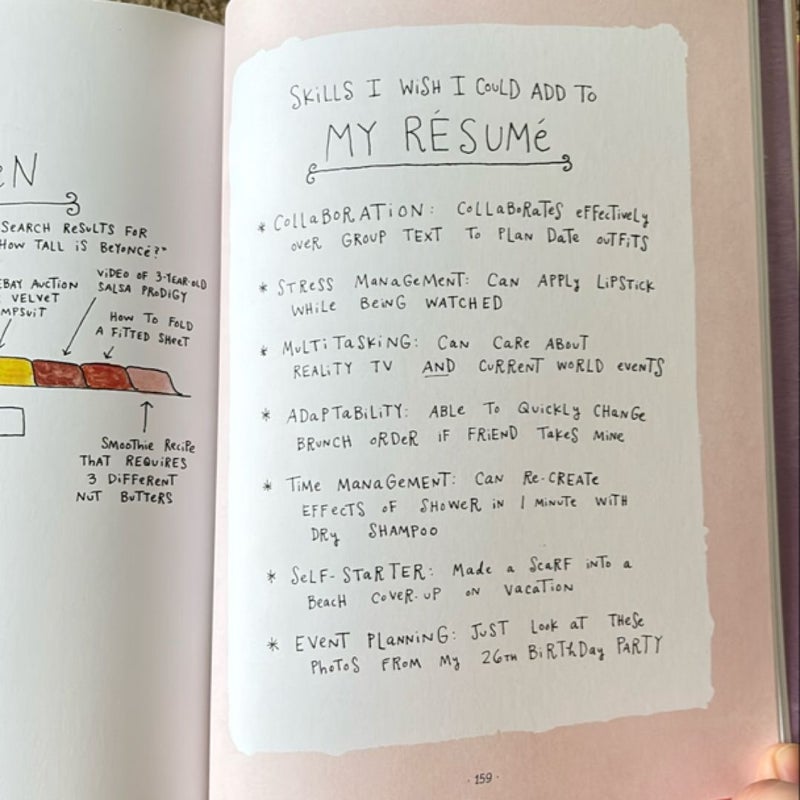 eN
SEARCH RESULTS FOR
HOW TALL IS BEYONCÉ?"
EBAY AUCTION
VELVET
MPSUIT
VIDEO OF 3-YEAR-OLD
SALSA PRODIGY
HOW TO FOLD
A FITTED SHEET
SMOOTHIE RECIPE
THAT REQUIRES
3 DIFFERENT
NUT BUTTERS
SKILLS I WISH I COULD ADD TO
MY RÉSUMÉ
* COLLABORATION: COLLABORATES EFFECTIVELY
OVER GROUP TEXT TO PLAN DATE OUTFITS
* STRESS MANAGEMENT: CAN APPLY LIPSTICK
WHILE BEING WATCHED
* MULTITASKING: CAN CARE ABOUT
REALITY TV AND CURRENT WORLD EVENTS
* ADAPTABILITY: ABLE TO QUICKLY CHANGE
BRUNCH ORDER IF FRIEND TAKES MINE
* TIME MANAGEMENT: CAN RE-CREATE
EFFECTS OF SHOWER IN 1 MINUTE WITH
DRY SHAMPOO
* SELF-STARTER: MADE A SCARF INTO A
BEACH COVER-UP ON VACATION
* EVENT PLANNING: JUST LOOK AT THESE
PHOTOS FROM MY 26TH BIRTHDAY PARTY
· 159 ·